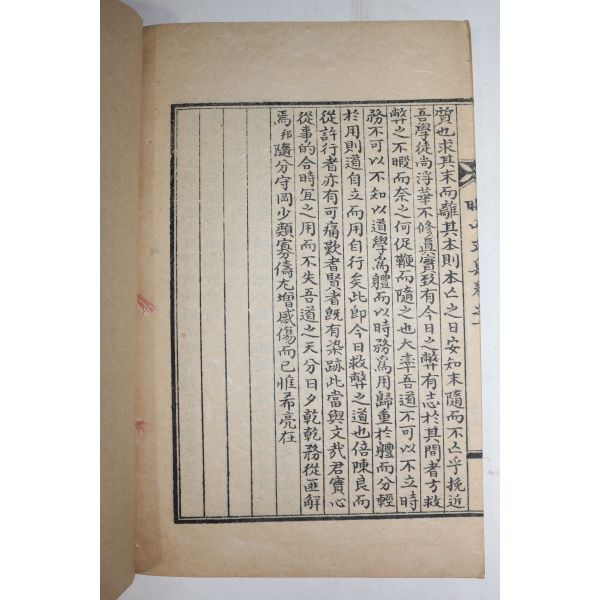 質也求其末而離其本則本亾之日安知末隨而不亾乎挽近
吾學徒尚浮華不修眞實致有今日之弊有志於其間者方救
弊之不暇而奈之何促鞭而隨之也大率吾道不可以不立時
務不可以不知以道學爲軆而以時務爲用歸重於軆而分輕
於用則道自立而用自行矣此卽今日救弊之道也倍陳良而
從許行者亦有可痛歎者賢者旣有染跡此當與文哉君實心
從事的合時宜之用而不失吾道之天分日夕乾乾務從匪解
焉邦隨分守岡少類寡儔尤增感傷而已惟希亮在